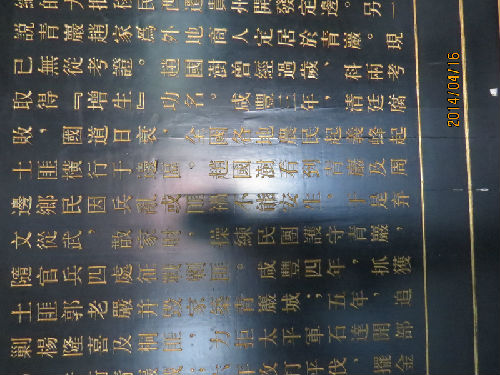 說青巖趙家爲外地商人定居於青巖。現
已無從考證。趙國澍曾經過歲、科兩考
取得『增生』功名。咸豐三年，清廷腐
敗，國道日衰，全國各地農民起義蜂起
土匪橫行于邊區。趙國澍看到青巖及周
邊鄉民因兵亂或匪禍不能安生。于是弃
文從武，散家財，操練民團護守青巖，
隨官兵四處征剿匪。咸豐四年，抓獲
土匪郭老嚴并毀家築青巖城；五年，追
剿楊隆喜及桐匪，力拒太平軍石達開部
2014/04/16